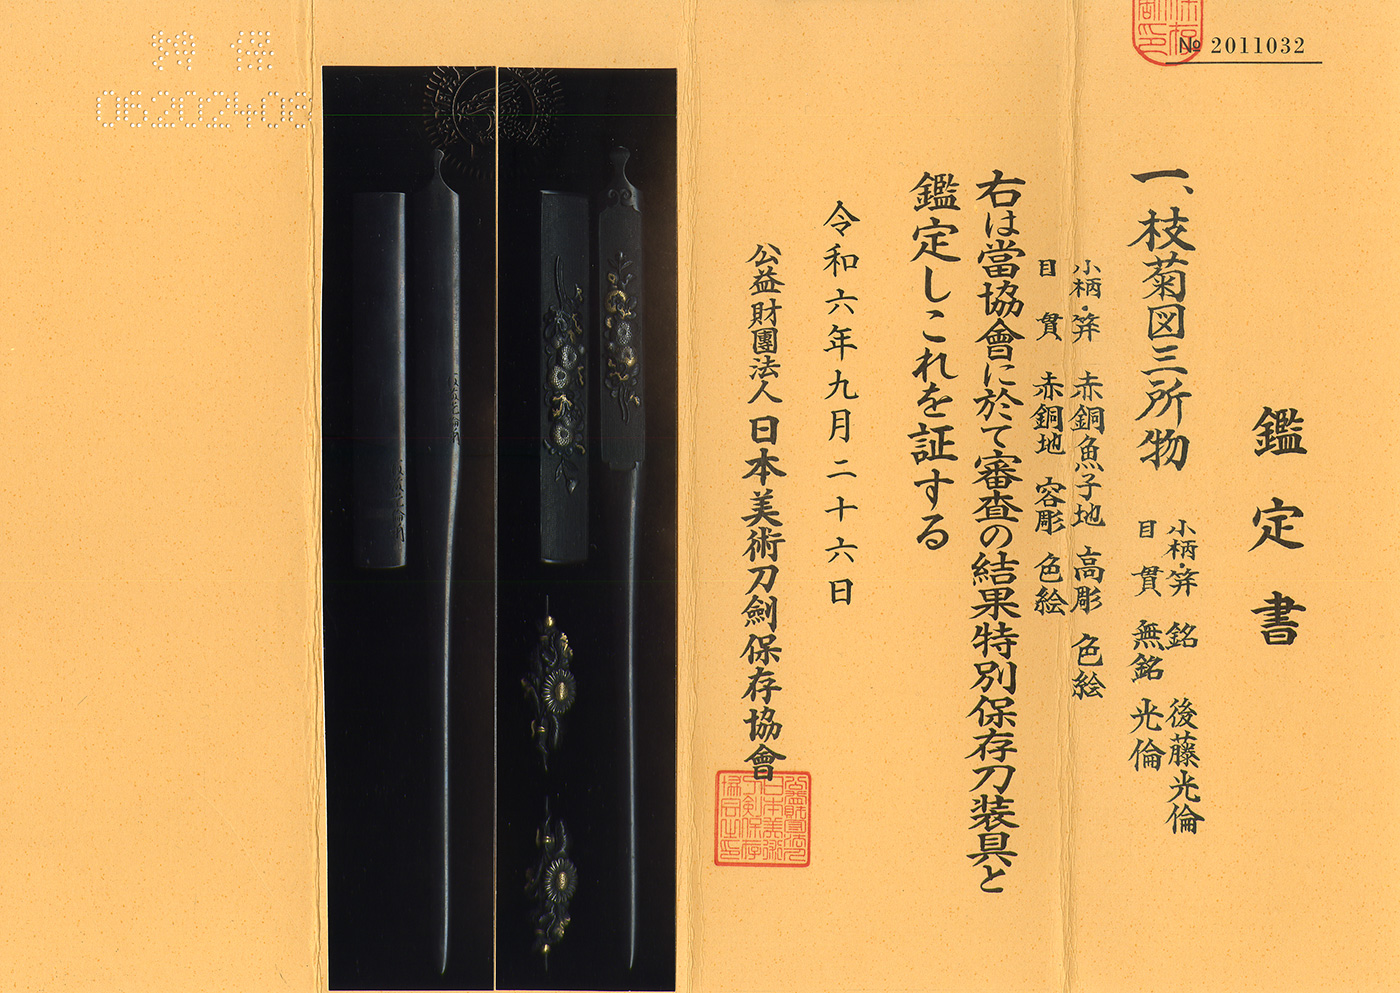 № 2011032
鑑定書
一、枝菊図三所物
小柄・笄 銘 後藤光倫
目貫 無銘 光倫
小柄・笄 赤銅魚子地 高彫 色絵
目貫 赤銅地 容彫 色絵
右は當協會に於て審査の結果特別保存刀装具と
鑑定しこれを証する
令和六年九月二十六日
公益財團法人 日本美術刀劍保存協會
06202408